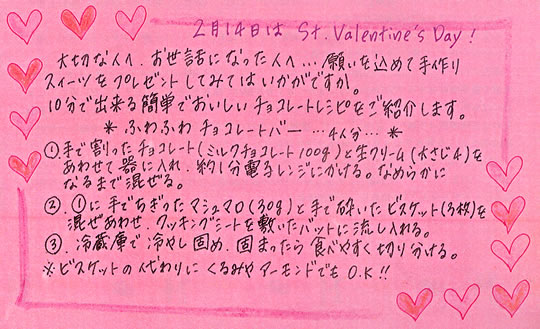 2月14日は St. Valentine's Day!
大切な人へ、お世話になった人へ…願いを込めて手作り
スイーツをプレゼントしてみてはいかがですか。
10分で出来る簡単でおいしいチョコレートレシピをご紹介します。
* ふわふわ チョコレートバー …4人分… *
①手で割ったチョコレート(ミルクチョコレート100g)と生クリーム(大さじ4)を
あわせて器に入れ、約1分電子レンジにかける。なめらかに
なるまで混ぜる。
②、①に手でちぎったマシュマロ(30g)と手で砕いたビスケット(3枚)を
混ぜあわせ、クッキングシートを敷いたバットに流し入れる。
③、冷蔵庫で冷やし固め、固まったら食べやすく切り分ける。
※ビスケットの代わりにくるみやアーモンドでもO.K!!